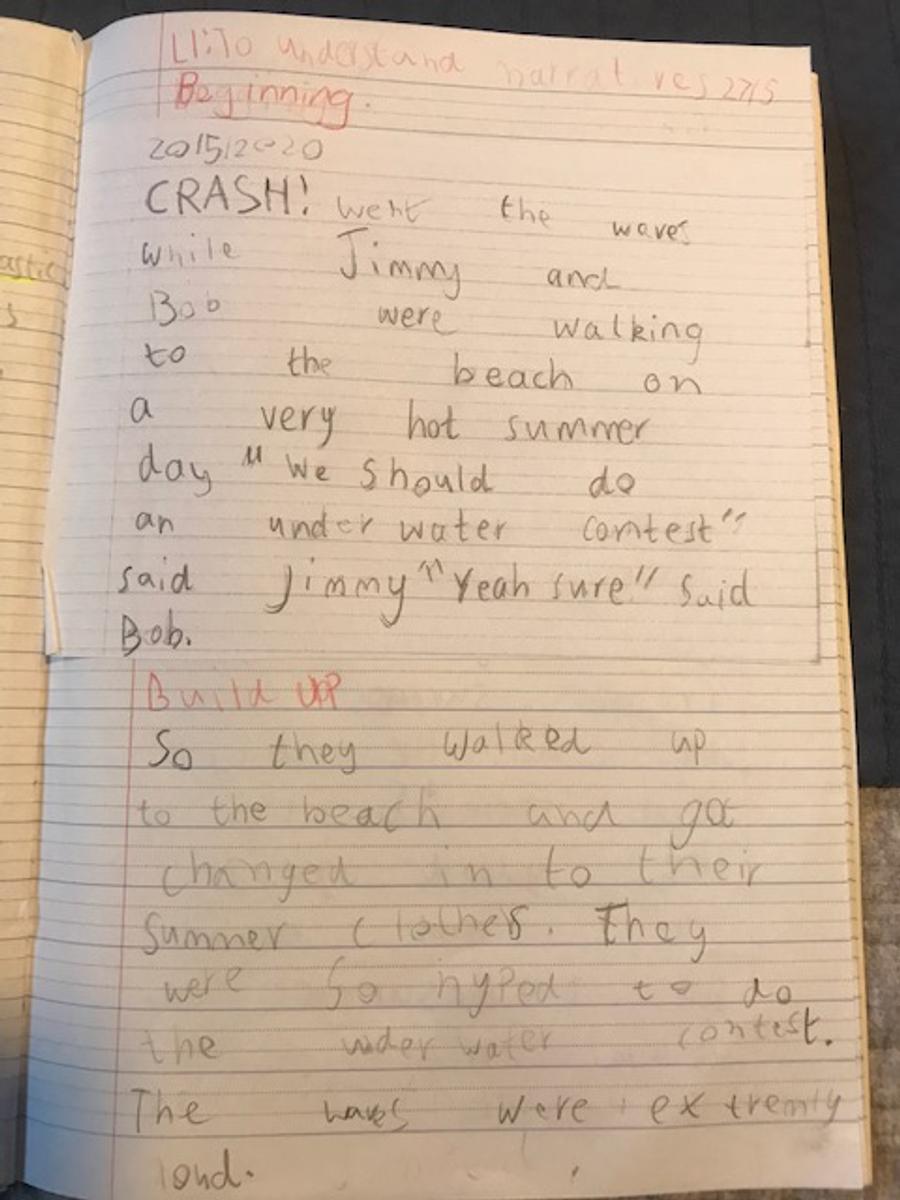 LI:To understand narratives 27/5
Beginning.
20/5/2020
CRASH! went the waves
while Jimmy and
Bob were walking
to the beach on
a very hot summer
day " We should do
an under water contest"
said Jimmy "Yeah sure" said
Bob.
Build UP
So they walked up
to the beach and got
changed in to their
Summer Clothes. They
were So hyped to do
the under water contest.
The waves were extremly
loud.
astic
s